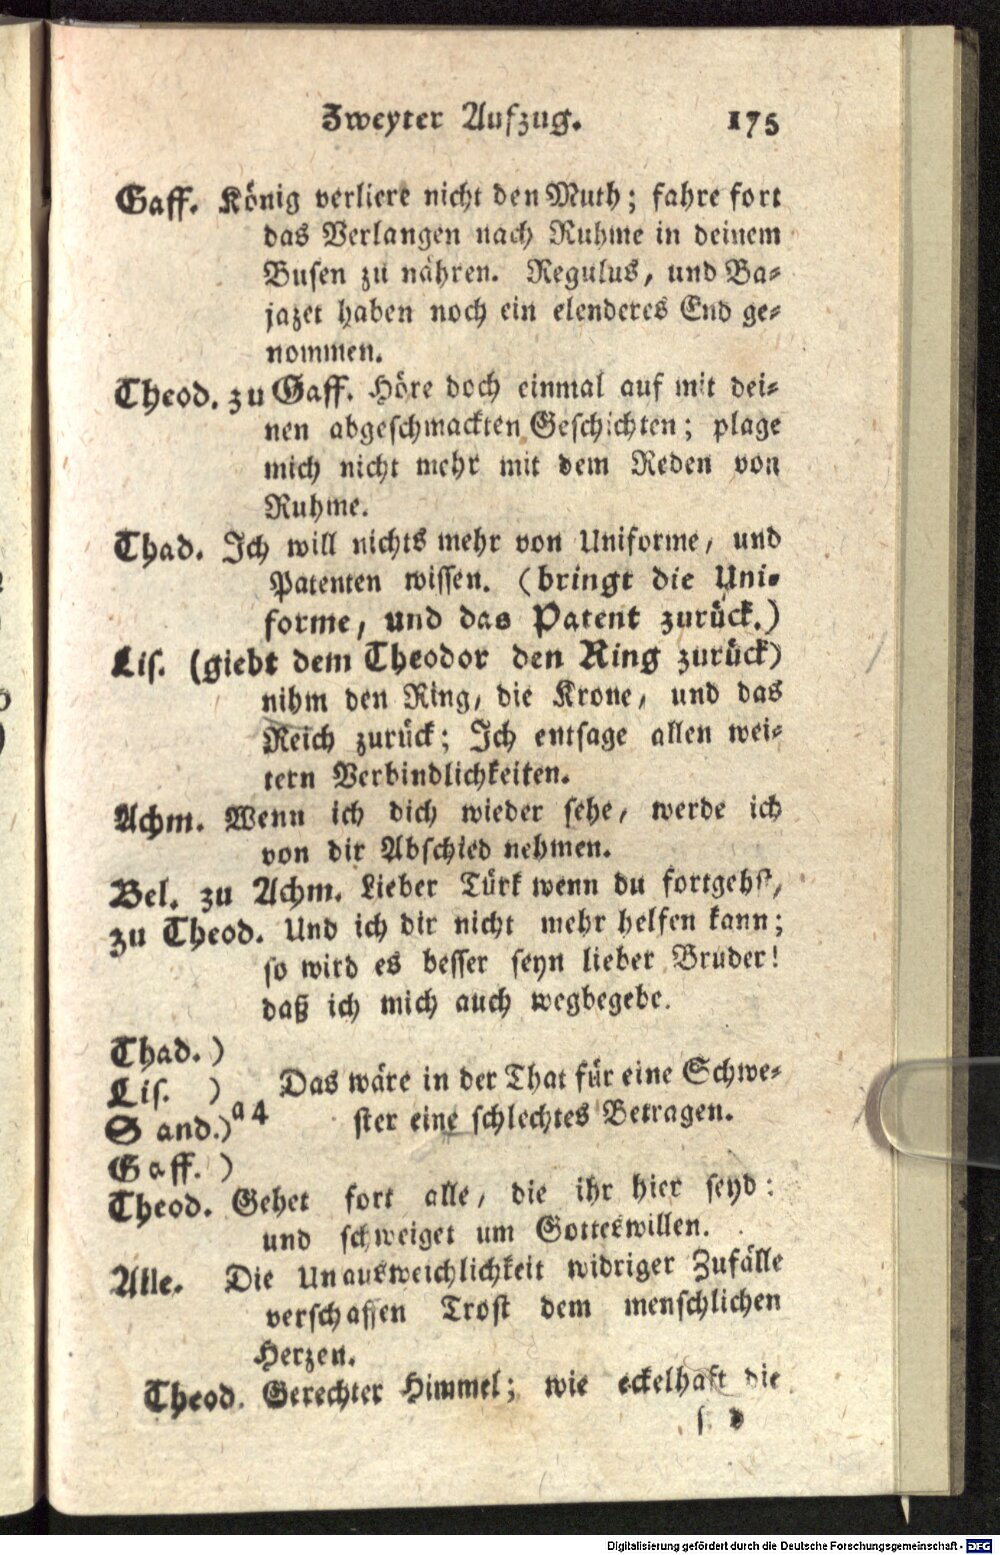 Zweyter Aufzug. 175
Gaff. König verliere nicht den Muth; fahre fort
das Verlangen nach Ruhme in deinem
Busen zu nähren. Regulus, und Ba-
jazet haben noch ein elenderes End ge-
nommen.
Theod. zu Gaff. Höre doch einmal auf mit dei-
nen abgeschmackten Geschichten; plage
mich nicht mehr mit dem Reden von
Ruhme.
Thad. Ich will nichts mehr von Uniforme, und
Patenten wissen. (bringt die Uni-
forme, und das Patent zurück.)
Lis. (giebt dem Theodor den Ring zurück)
nihm den Ring, die Krone, und das
Reich zurück; Ich entsage allen wei-
tern Verbindlichkeiten.
Achm. Wenn ich dich wieder sehe, werde ich
von dir Abschied nehmen.
Bel. zu Achm. Lieber Türk wenn du fortgehst,
zu Theod. Und ich dir nicht mehr helfen kann;
so wird es besser seyn lieber Bruder!
daß ich mich auch wegbegebe.
Thad. )
Lis. )
Sand.) a 4 Das wäre in der That für eine Schwe-
ster eine schlechtes Betragen.
Gaff. )
Theod. Gehet fort alle, die ihr hier seyd:
und schweiget um Gotteswillen.
Alle. Die Unausweichlichkeit widriger Zufälle
verschaffen Trost dem menschlichen
Herzen.
Theod. Gerechter Himmel; wie eckelhaft die
Digitalisierung gefördert durch die Deutsche Forschungsgemeinschaft - DFG